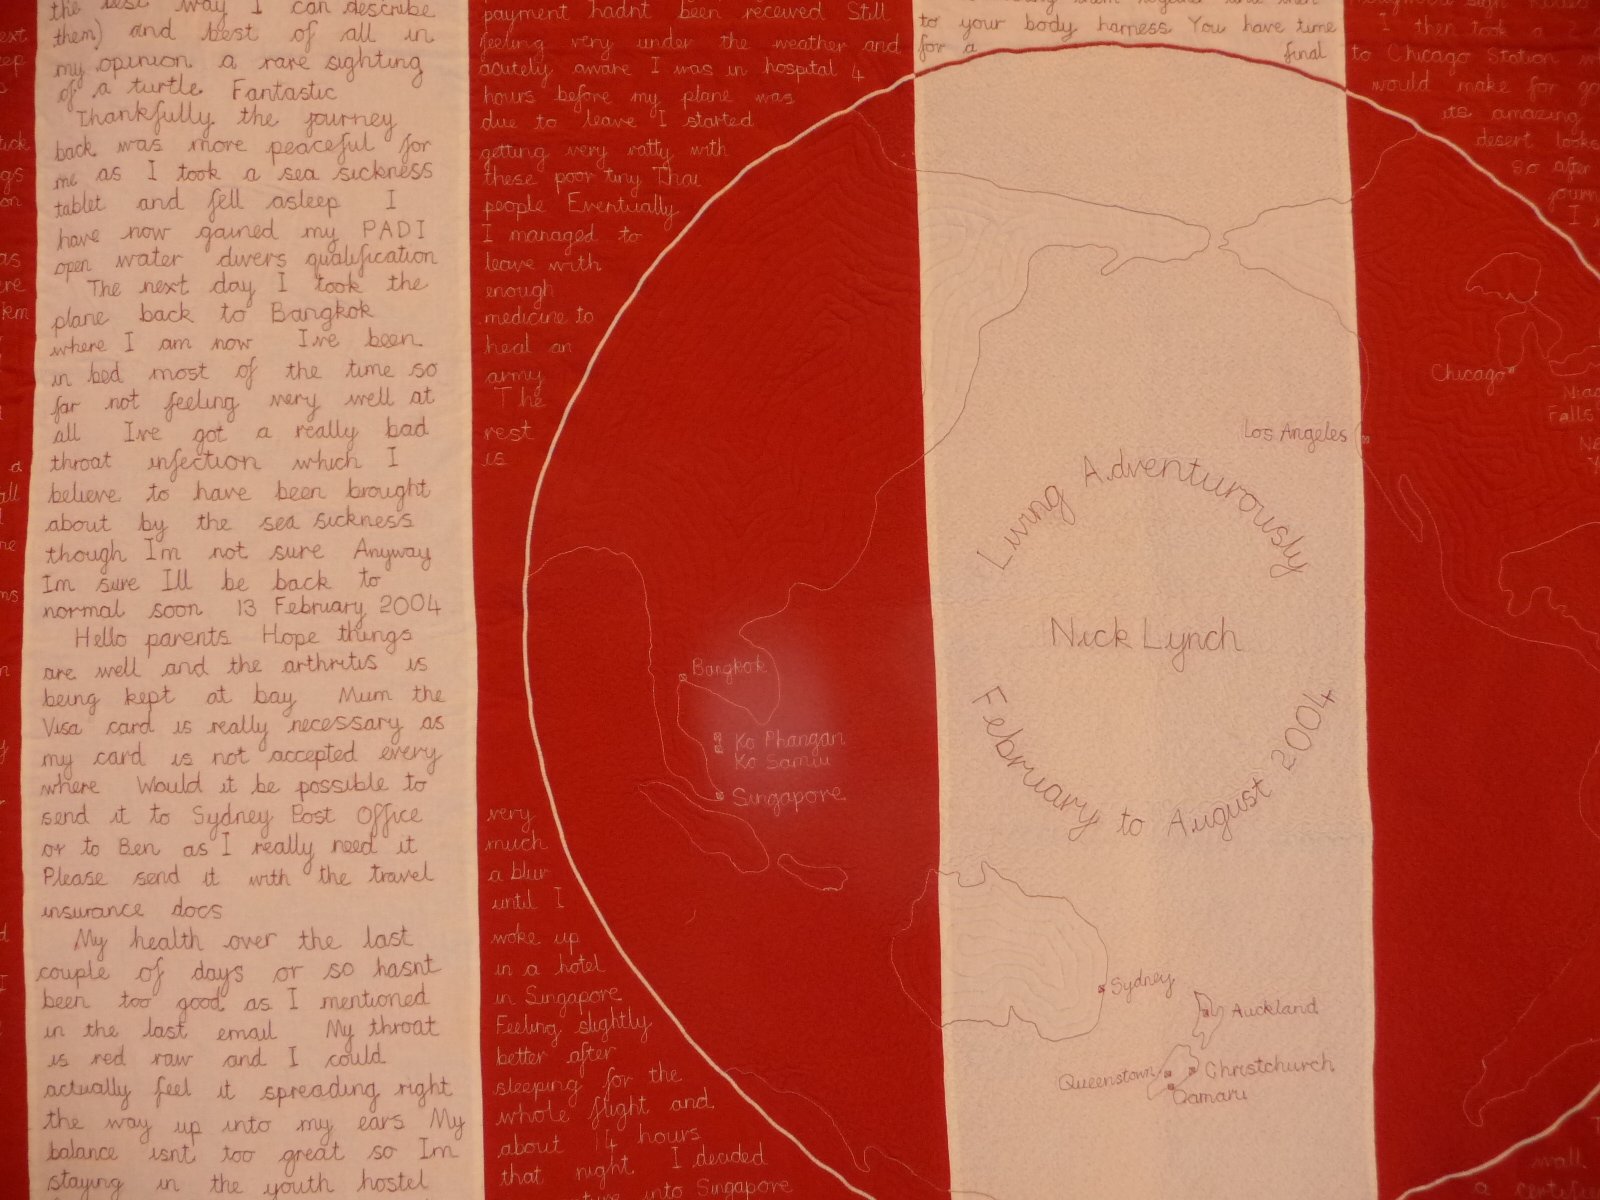 the best way I can describe
them) and best of all in
my opinion a rare sighting
of a turtle Fantastic
Thankfully the journey
back was more peaceful for
me as I took a sea sickness
tablet and fell asleep I
have now gained my PADI
open water divers qualification
The next day I took the
plane back to Bangkok
where I am now Ive been
in bed most of the time so
far not feeling very well at
all Ive got a really bad
throat infection which I
believe to have been brought
about by the sea sickness
though Im not sure Anyway
Im sure Ill be back to
normal soon 13 February 2004
Hello parents Hope things
are well and the arthritis is
being kept at bay Mum the
Visa card is really necessary as
my card is not accepted every
where Would it be possible to
send it to Sydney Post Office
or to Ben as I really need it
Please send it with the travel
insurance docs
My health over the last
couple of days or so hasnt
been too good as I mentioned
in the last email My throat
is red raw and I could
actually feel it spreading right
the way up into my ears My
balance isnt too great so Im
staying in the youth hostel
payment hadnt been received Still
feeling very under the weather and
acutely aware I was in hospital 4
hours before my plane was
due to leave I started
getting very ratty with
these poor tiny Thai
people Eventually
I managed to
leave with
enough
medicine to
heal an
army
The
rest
is
very
much
a blur
until I
woke up
in a hotel
in Singapore
Feeling slightly
better after
sleeping for the
whole flight and
about 14 hours
that night I decided
into Singapore
to your body harness You have time
for a final
I then took a
to Chicago Station
would make for
its amazing
desert looks
so after
journ
I
Chicago
Falls
Los Angeles
Living Adventurously
Nick Lynch
February to August 2004
Bangkok
Ko Phangan
Ko Samui
Singapore
Sydney
Auckland
Queenstown
Christchurch
Oamaru
wall